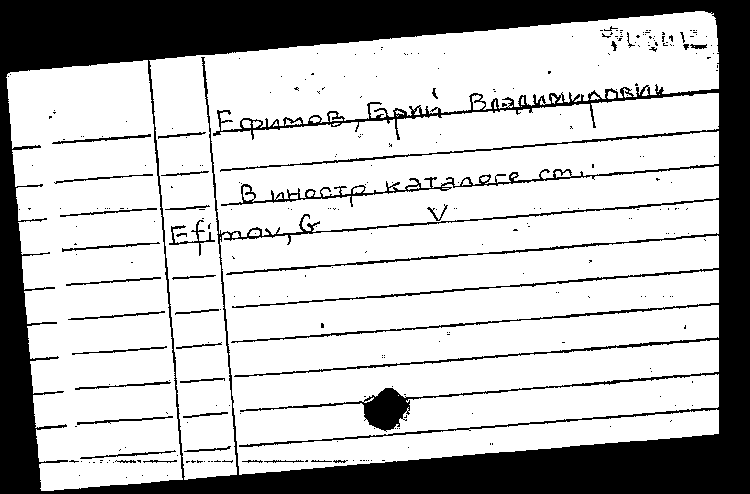 Ефимов, Гарий Владимирович
В иностр. каталоге см.:
Efimov, G V